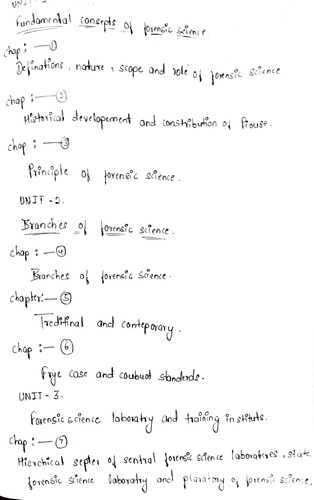 UNIT -
Fundamental concepts of forensic science.
Chap :— ①
Definations, nature, scope and role of forensic science
chap :— ②
Historical developement and constribution of Piouse.
chap :— ③
Principle of forencic science.
UNIT -2.
Branches of forensic science.
chap :— ④
Branches of forencic science.
chapter:— ⑤
Treditinal and conteporary.
Chap :— ⑥
Frye case and coubuot standerds.
UNIT - 3.
Forensic science laboratry and training instituts.
Chap :— ⑦
Hierchical septer of sentral forensic science laborateres, state
forensic sience laboratry and of forensic science.